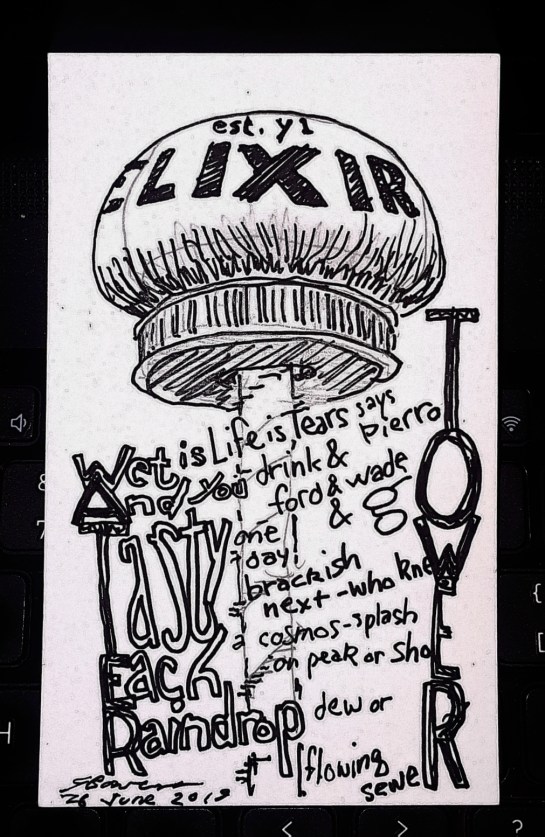 est. y1
ELIXIR
TOWER
Wet is Life is Tears says
Pierro
And you drink &
ford & wade
& go
Tasty one
day!
brackish
next-who knew
cosmos-splash
on peak or sho
Each
Raindrop dew or
flowing
sewer
June 2019
8
7
H
{
[
<
>
?